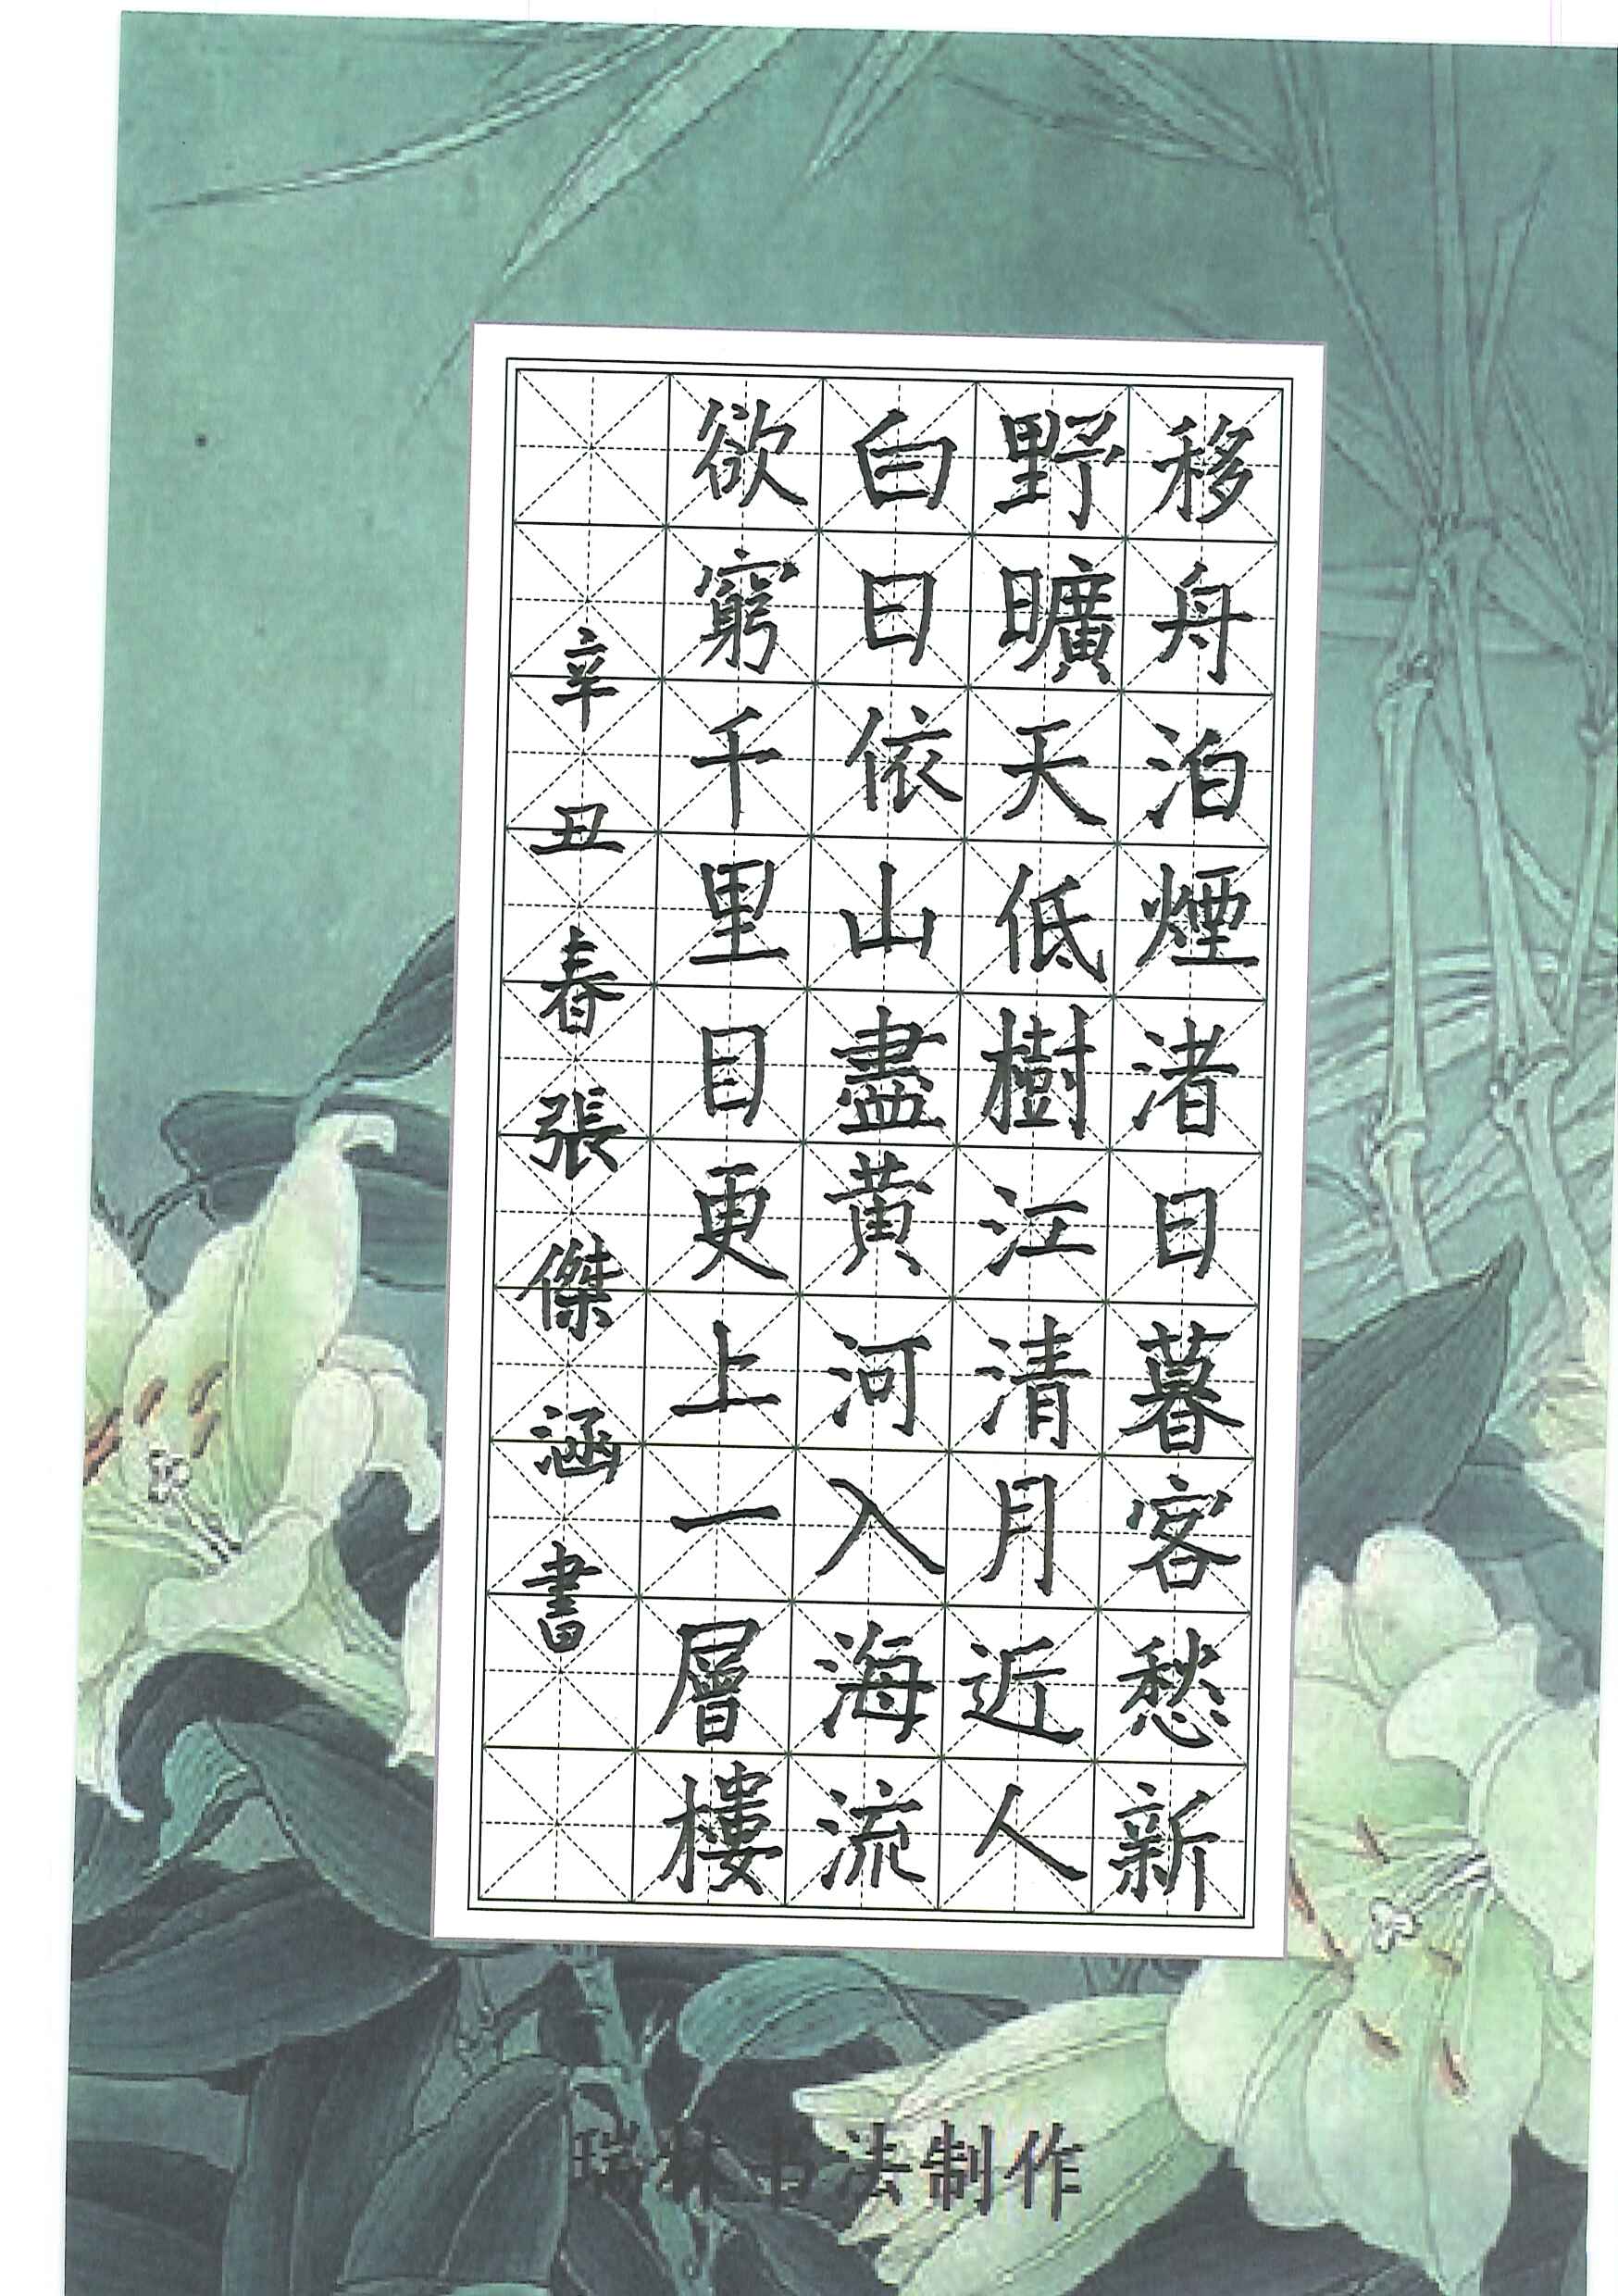 移舟泊煙渚日暮客愁新
野曠天低樹江清月近人
白日依山盡黄河入海流
欲窮千里目更上一層樓
辛丑春張傑涵書
瑞林书法制作